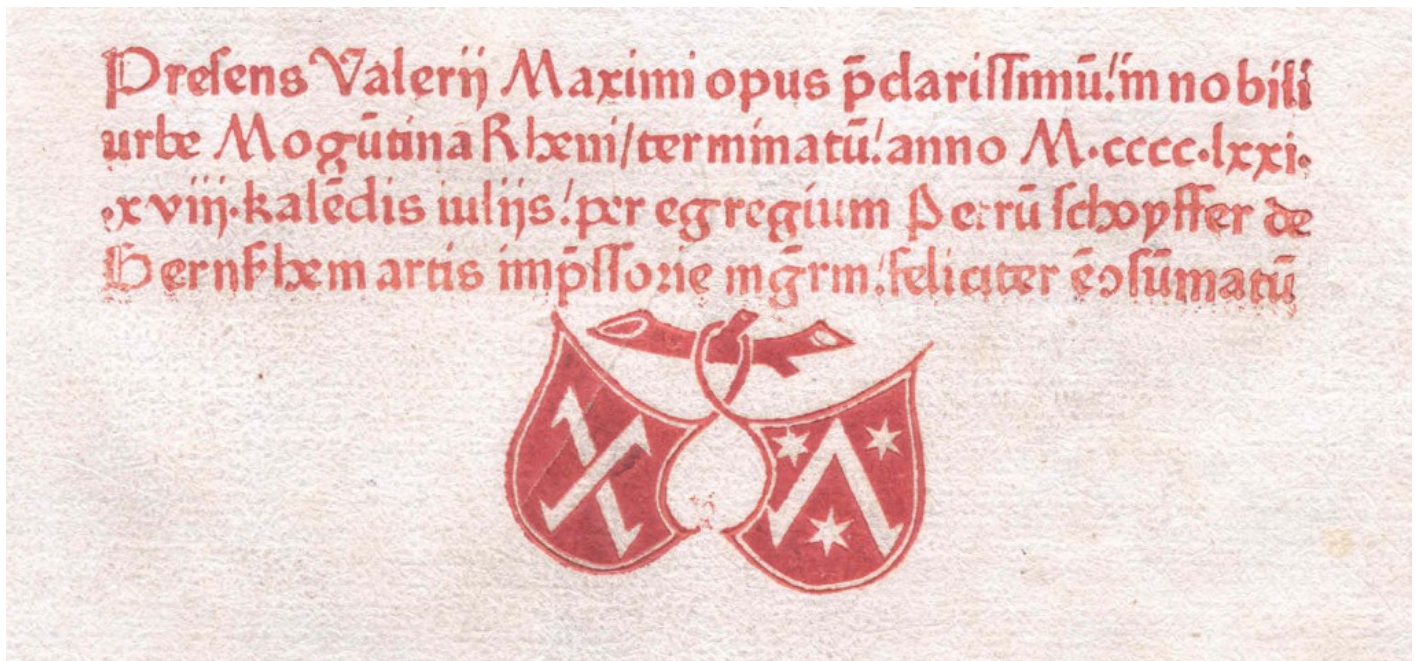 Presens Valerij Maximi opus p̄clarissimū! in nobili
urbe Mogūtina Rheni/terminatū! anno M·cccc·lxxi·
·xviij·kalēdis iulijs! per egregium Petrū schoyffer de
Gernsshem artis imp̄ssorie mḡrm! feliciter ē ꝯsūmatū